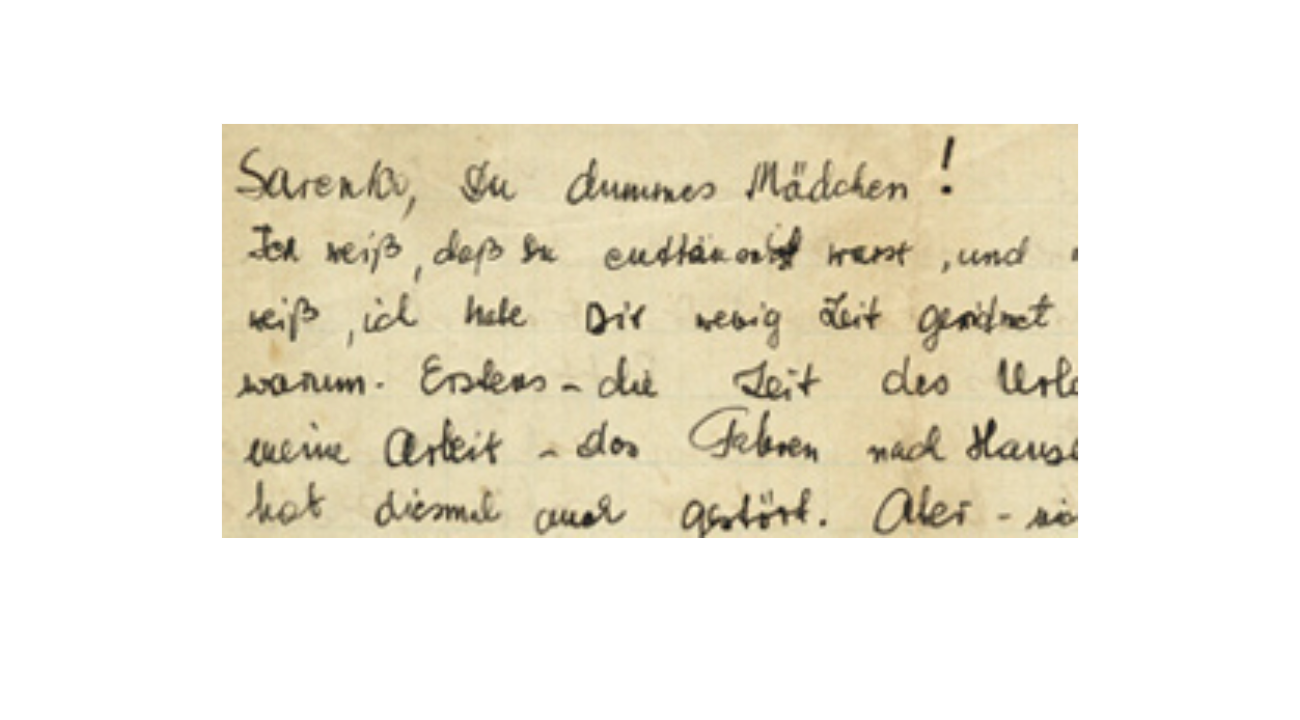 Sarenka, Du dummes Mädchen!
Ich weiß, daß Du enttäuscht warst, und
weiß, ich habe Dir wenig Zeit gewidmet
warum. Erstens - die Zeit des Urla
meine Arbeit - das Fahren nach Hause
hat diesmal auch gestört. Aber -